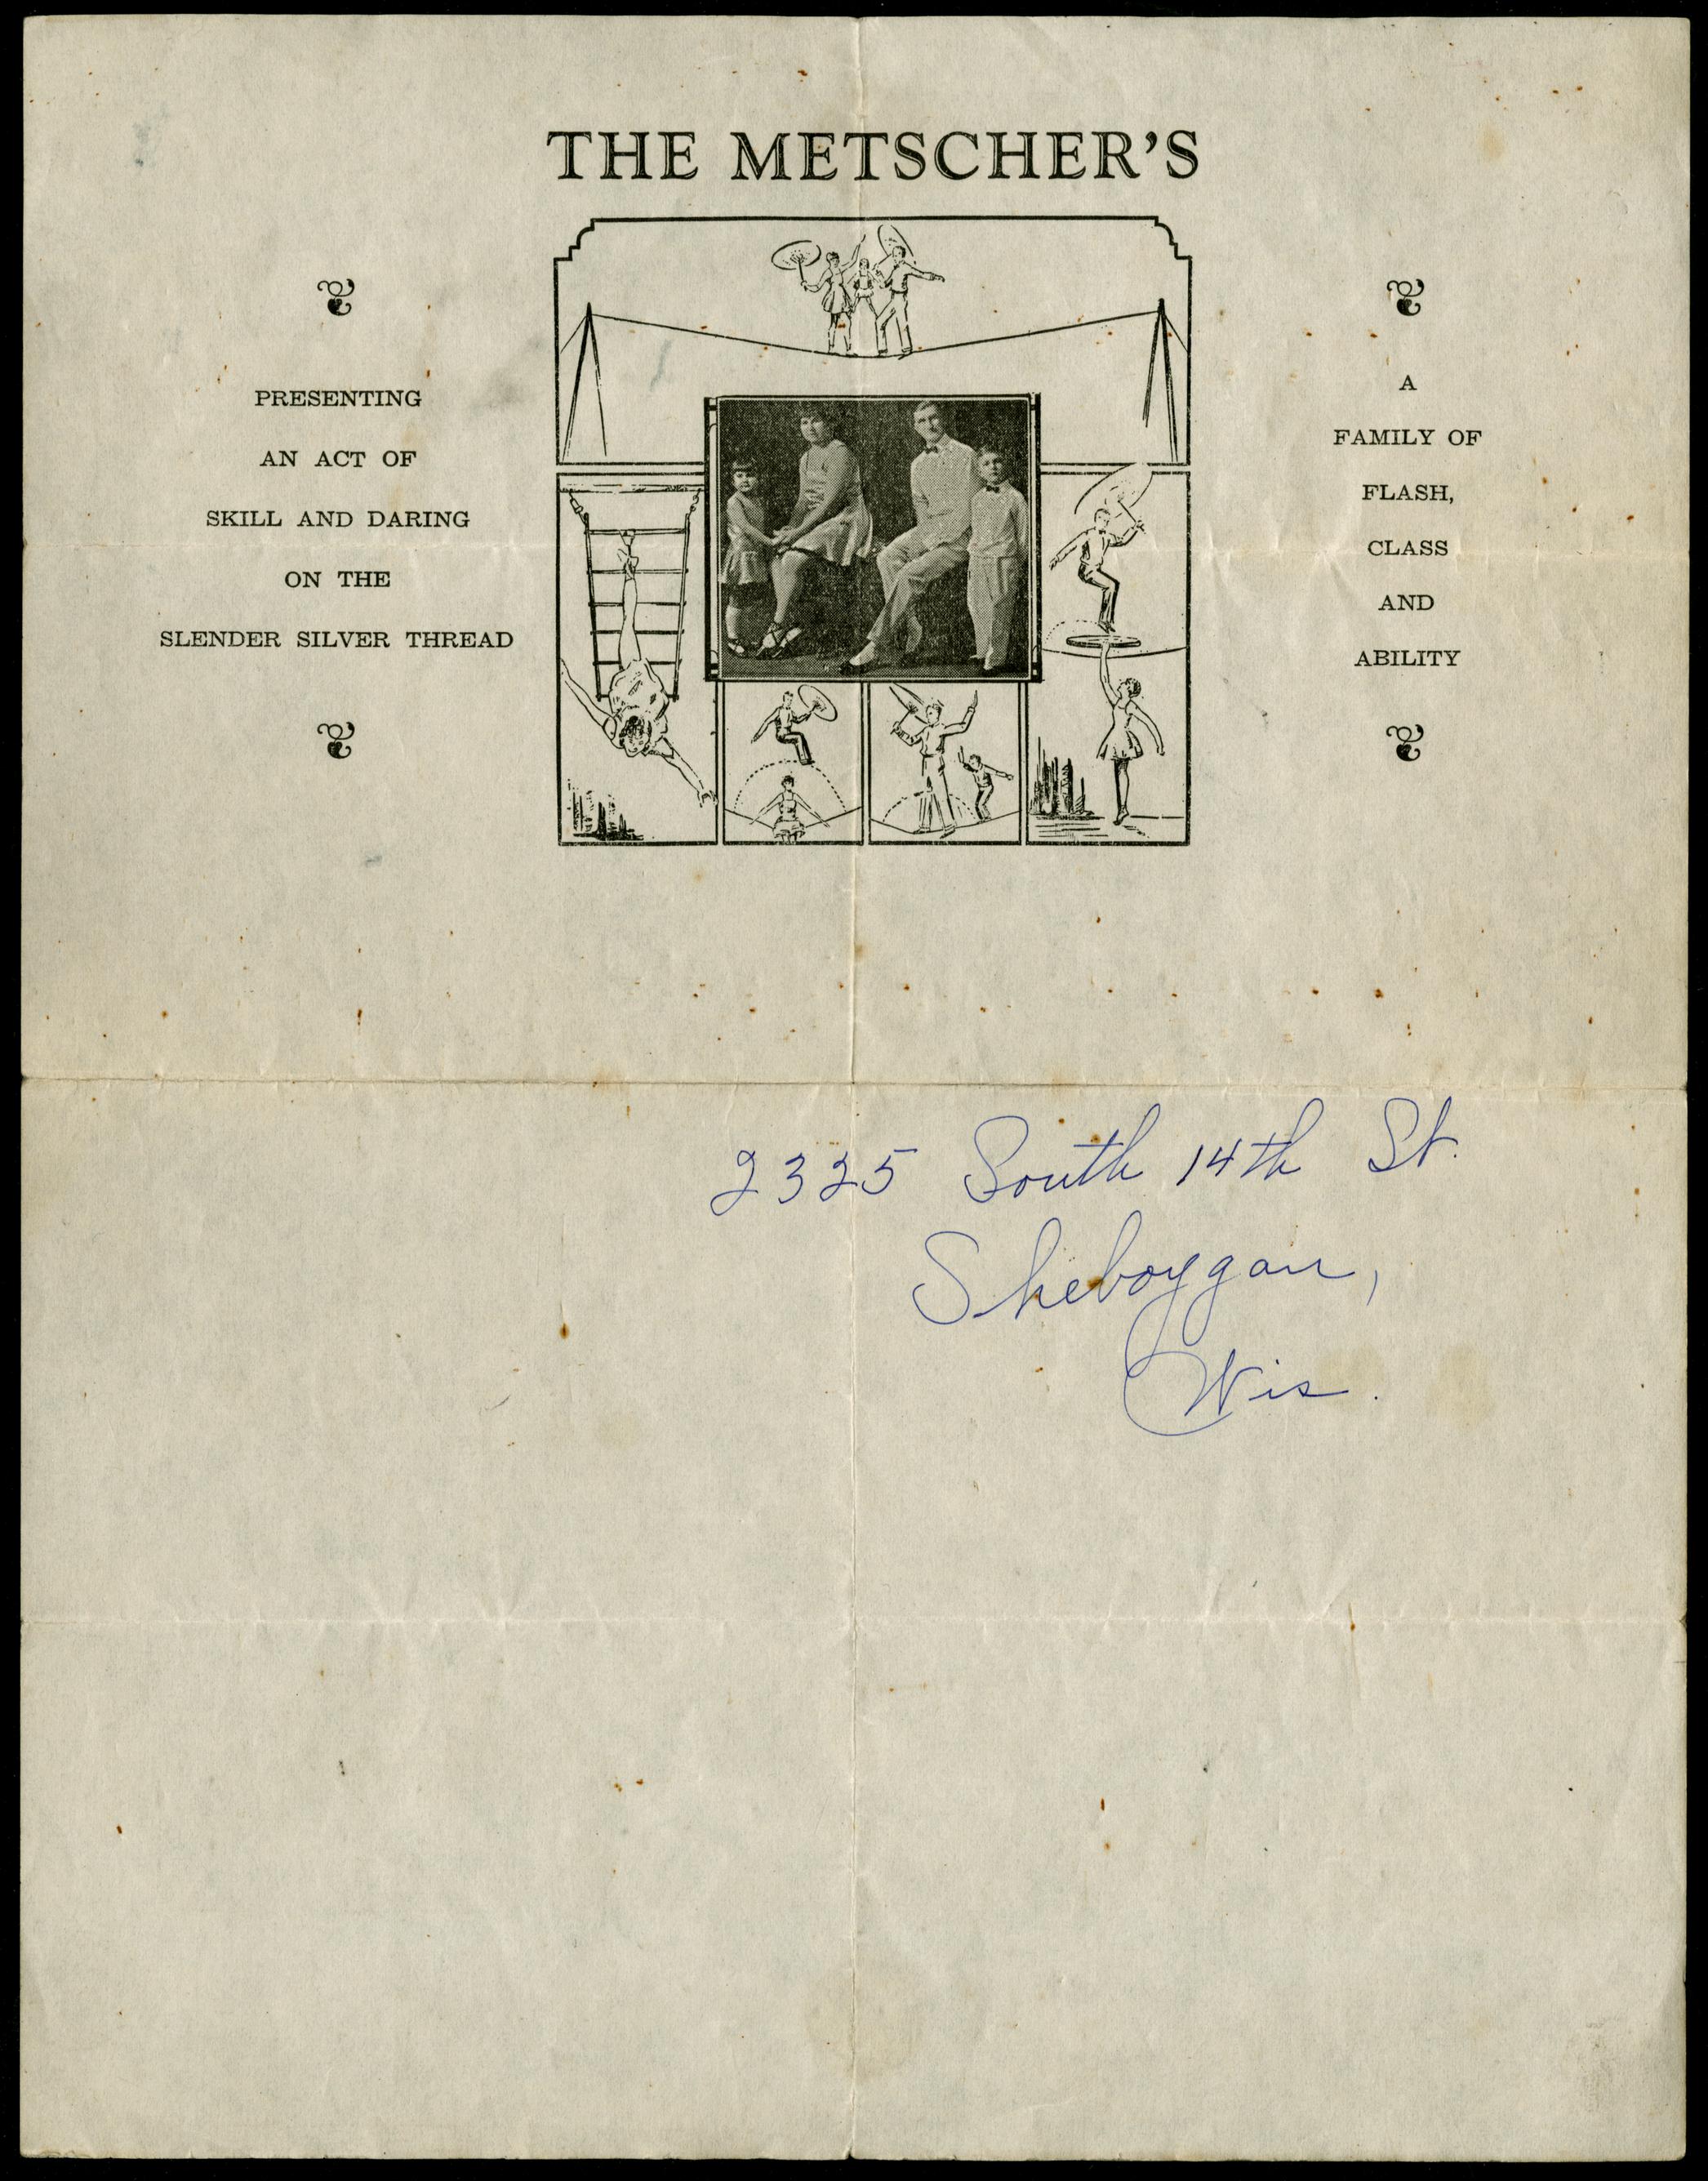 THE METSCHER'S
PRESENTING
AN ACT OF
SKILL AND DARING
ON THE
SLENDER SILVER THREAD
A
FAMILY OF
FLASH,
CLASS
AND
ABILITY
2325 South 14th St.
Sheboygan,
Wis.